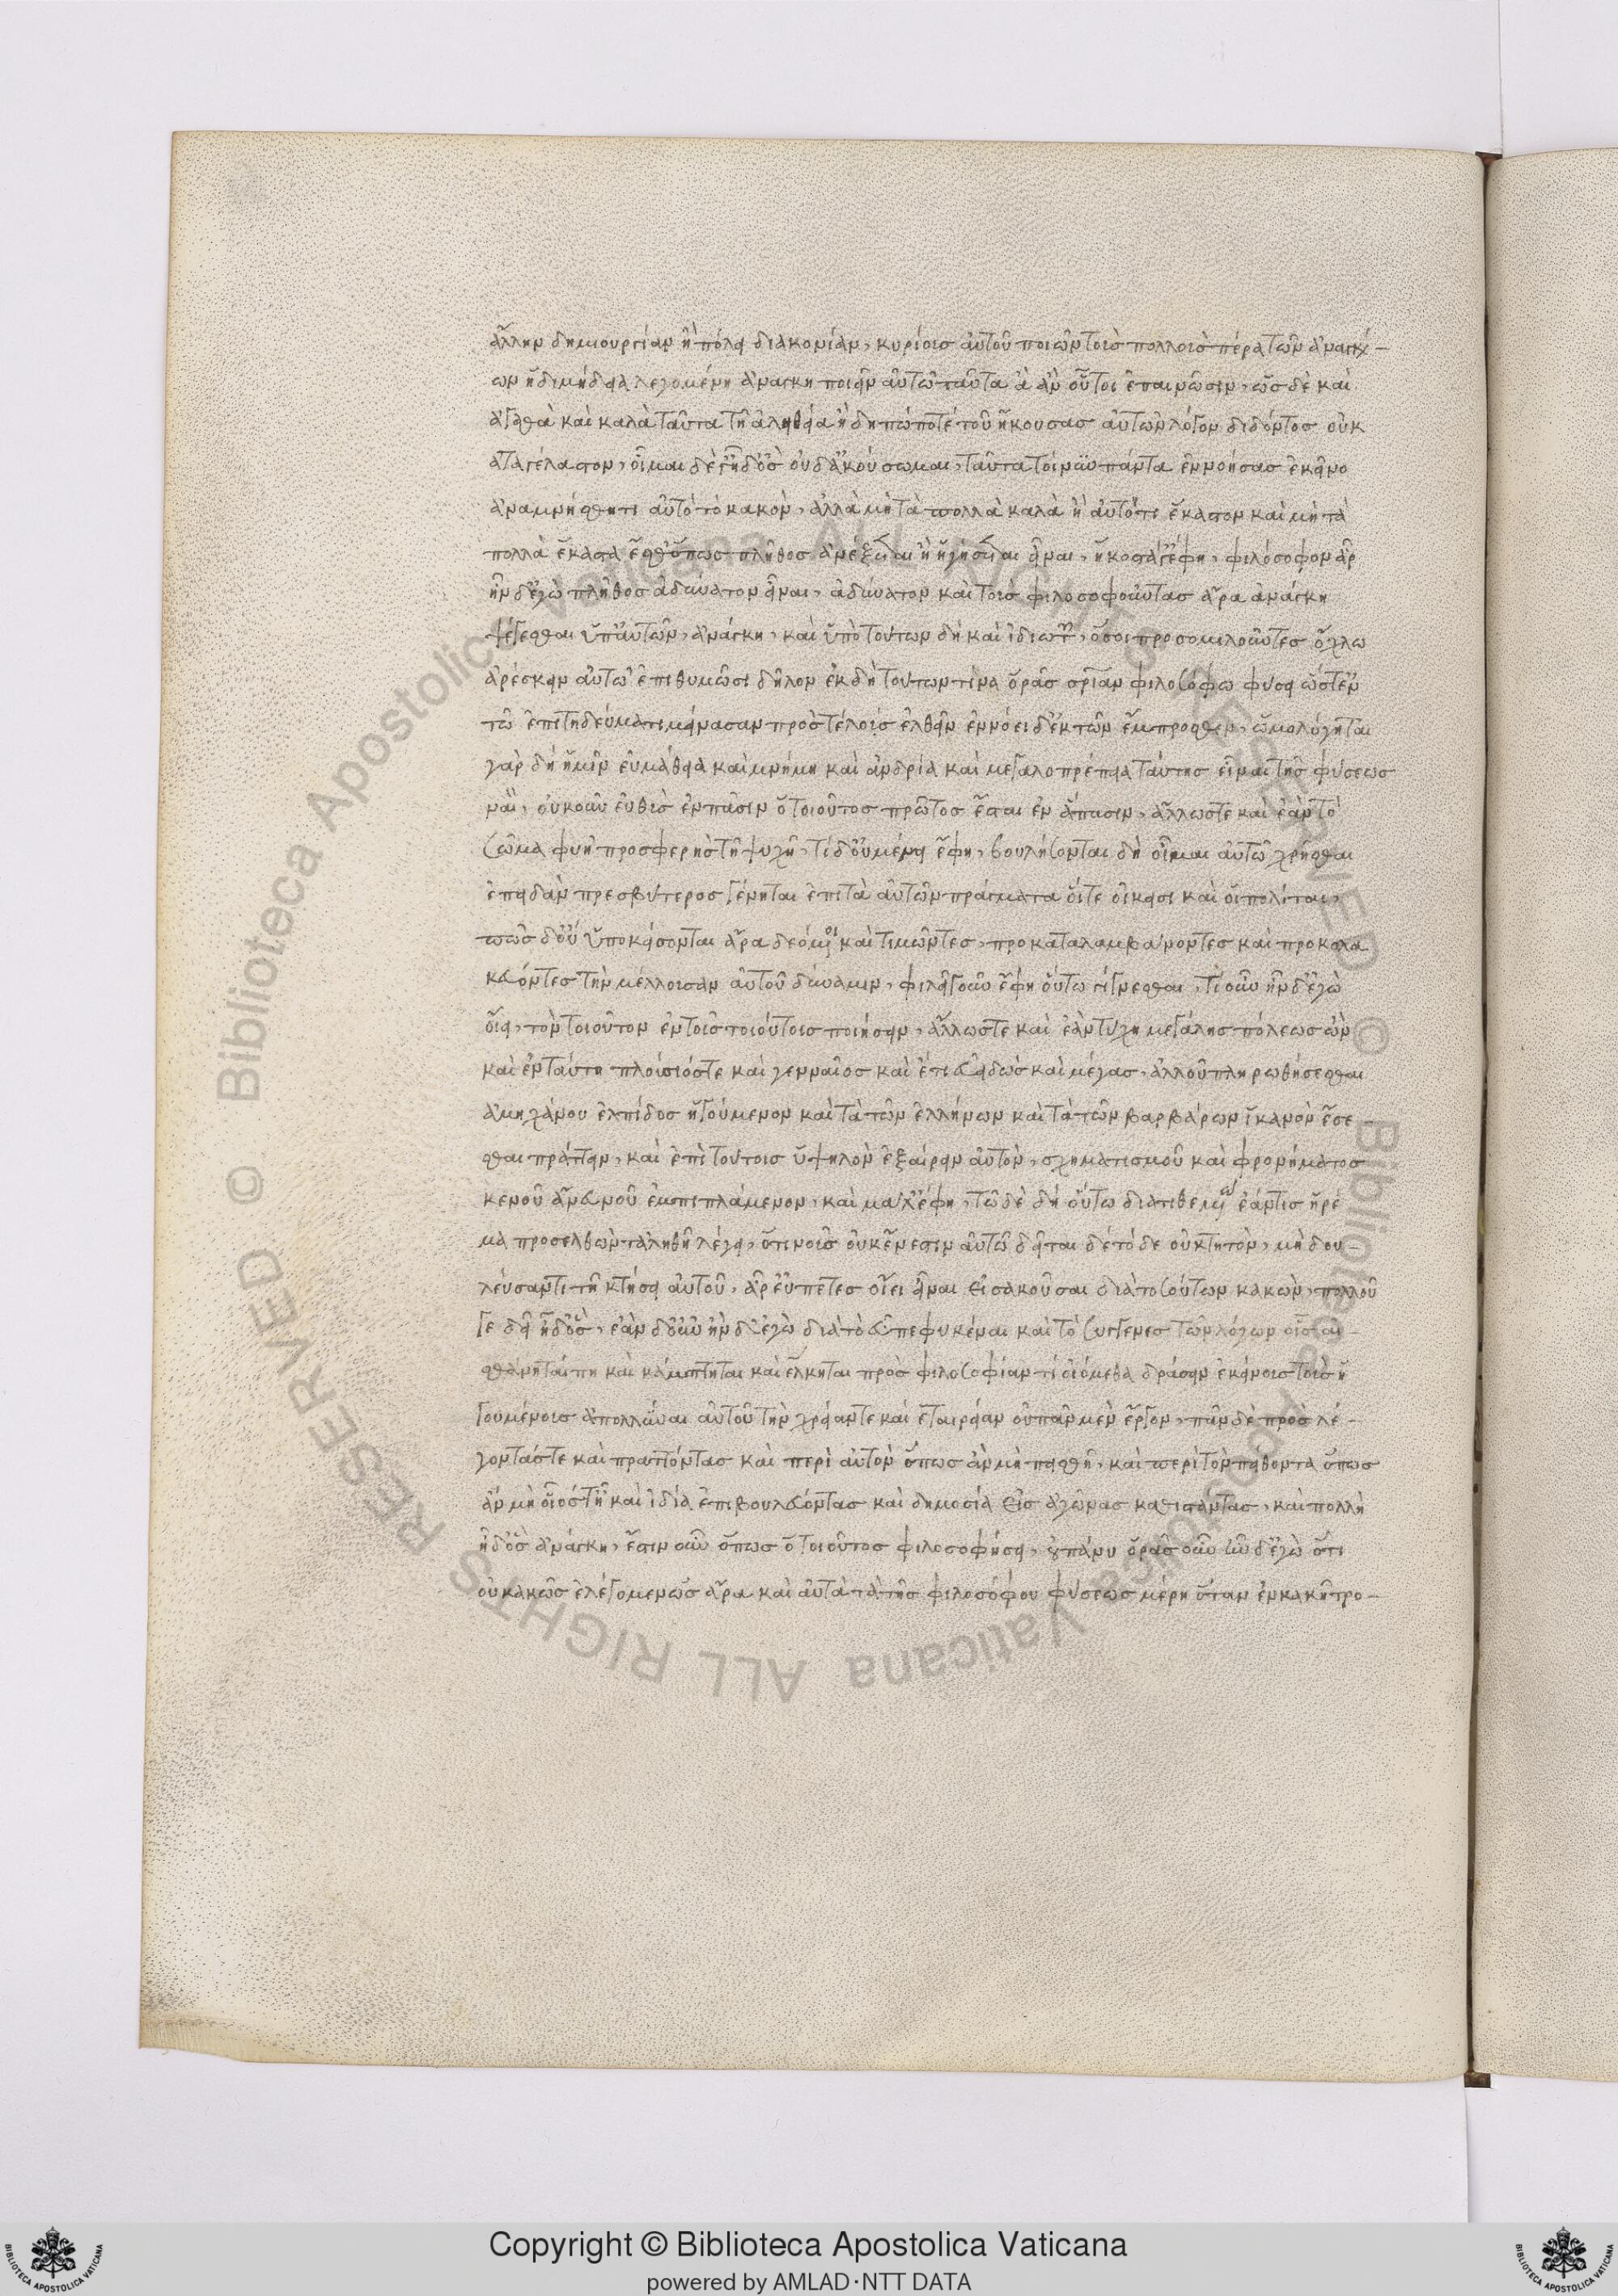 ἄλλην δημιουργίαν ἢ πόλει διακονίαν, κυρίους αὑτοῦ ποιῶν τοὺς πολλοὺς πέρα τῶν ἀναγκαί-
ων ἡ διομήδεια λεγομένη ἀνάγκη ποιεῖν αὐτῶ ταῦτα ἃ ἂν οὗτοι ἐπαινῶσιν, ὡς δὲ καὶ
ἀγαθὰ καὶ καλὰ ταῦτα τῇ ἀληθεία ἤδη πώποτέ του ἤκουσας αὐτῶν λόγον διδόντος οὐ κ
αταγέλαστον, οἶμαι δέ γ' ἦ δ' ὃς οὐδ' ἀκούσομαι, ταῦτα τοίνυν πάντα ἐννοήσας ἐκεῖνο
ἀναμνήσθητι αὐτὸ τὸ καλὸν, ἀλλὰ μὴ τὰ πολλὰ καλὰ ἢ αὐτό τι ἕκαστον καὶ μὴ τὰ
πολλὰ ἕκαστα ἔσθ' ὅπως πλῆθος ἀνέξεται ἢ ἡγήσεται εἶναι, ἥκιστά γ' ἔφη, φιλόσοφον ἄρ
ἦν δ' ἐγὼ πλῆθος ἀδύνατον εἶναι, ἀδύνατον καὶ τοὺς φιλοσοφοῦντας ἄρα ἀνάγκη
ψέγεσθαι ὑπ' αὐτῶν, ἀνάγκη, καὶ ὑπὸ τούτων δὴ καὶ ἰδιωτῶν, ὅσοι προσομιλοῦντες ὄχλω
ἀρέσκειν αὐτῶ ἐπιθυμῶσι δῆλον ἐκ δὴ τούτων τίνα ὁρᾶς σωτηρίαν φιλοσόφω φύσει ὥστ' ἐν
τῶ ἐπιτηδεύματι μείνασαν πρὸς τέλος ἐλθεῖν ἐννόει δ' ἐκ τῶν ἔμπροσθεν, ὡμολόγηται
γὰρ δὴ ἡμῖν εὐμάθεια καὶ μνήμη καὶ ἀνδρία καὶ μεγαλοπρέπεια ταύτης εἶναι τῆς φύσεως
ναί, οὐκοῦν εὐθὺς ἐν πᾶσιν ὁ τοιοῦτος πρῶτος ἔσται ἐν ἅπασιν, ἄλλως τε καὶ ἐὰν τὸ
σῶμα φυῇ προσφερὴς τῇ ψυχῇ, τί δ' οὐ μέλλει ἔφη, βουλήσονται δὴ οἶμαι αὐτῶ χρῆσθαι
ἐπειδὰν πρεσβύτερος γένηται ἐπὶ τὰ αὑτῶν πράγματα οἵ τε οἰκεῖοι καὶ οἱ πολῖται,
πῶς δ' οὔ ὑποκείσονται ἄρα δεόμενοι καὶ τιμῶντες, προκαταλαμβάνοντες καὶ προκολα
κεύοντες τὴν μέλλουσαν αὐτοῦ δύναμιν, φιλεῖ γοῦν ἔφη οὕτω γίγνεσθαι, τί οὖν ἦν δ' ἐγὼ
οἴει, τὸν τοιοῦτον ἐν τοῖς τοιούτοις ποιήσειν, ἄλλως τε καὶ ἐὰν τύχῃ μεγάλης πόλεως ὢν
καὶ ἐν ταύτῃ πλούσιός τε καὶ γενναῖος καὶ ἔτι εὐειδὼς καὶ μέγας, ἀλλ' οὐ πληρωθήσεσθαι
ἀμηχάνου ἐλπίδος ἡγούμενον καὶ τὰ τῶν ἑλλήνων καὶ τὰ τῶν βαρβάρων ἱκανὸν ἔσε
σθαι πράττειν, καὶ ἐπὶ τούτοις ὑψηλὸν ἐξαίρειν αὐτὸν, σχηματισμοῦ καὶ φρονήματος
κενοῦ ἄνευ νοῦ ἐμπιπλάμενον, καὶ μάλ' ἔφη, τῶ δὲ δὴ οὕτω διατιθεμένω ἐάν τις ἠρέ
μα προσελθὼν τἀληθῆ λέγῃ, ὅτι νοῦς οὐκ ἔνεστιν αὐτῶ δεῖται δέ τὸ δε οὐ κτητὸν, μὴ δου-
λεύσαντι τῇ κτήσει αὐτοῦ, ἆρ' εὐπετὲς οἴει εἶναι εἰσακοῦσαι διὰ τοσούτων κακῶν, πολλοῦ
γε δεῖ ἦ δ' ὅς, ἐὰν δ' οὖν ἦν δ' ἐγὼ διὰ τὸ εὖ πεφυκέναι καὶ τὸ συγγενὲς τῶν λόγων εἷς αἰ-
σθάνηταί πῃ καὶ κάμπτηται καὶ ἕλκηται πρὸς φιλοσοφίαν τί οἰόμεθα δράσειν ἐκείνους τοὺς ἡ
γουμένους ἀπολλύναι αὐτοῦ τὴν χρείαν τε καὶ ἑταιρείαν οὐ πᾶν μὲν ἔργον, πᾶν δὲ πρὸς λέ-
γοντάς τε καὶ πράττοντας καὶ περὶ αὐτὸν ὅπως ἂν μὴ πεισθῇ, καὶ περὶ τὸν πείθοντα ὅπως
ἂν μὴ οἷός τ' ᾖ καὶ ἰδία ἐπιβουλεύοντας καὶ δημοσία εἰς ἀγῶνας καθιστάντας, καὶ πολλὴ
ἦ δ' ὃς ἀνάγκη, ἔστιν οὖν ὅπως ὁ τοιοῦτος φιλοσοφήσει, οὐ πάνυ ὁρᾶς οὖν ἦν δ' ἐγὼ ὅτι
οὐ κακῶς ἐλέγομεν ὡς ἄρα καὶ αὐτὰ τὰ τῆς φιλοσόφου φύσεως μέρη ὅταν ἐν κακῇ τρο-
Copyright © Biblioteca Apostolica Vaticana
powered by AMLAD·NTT DATA